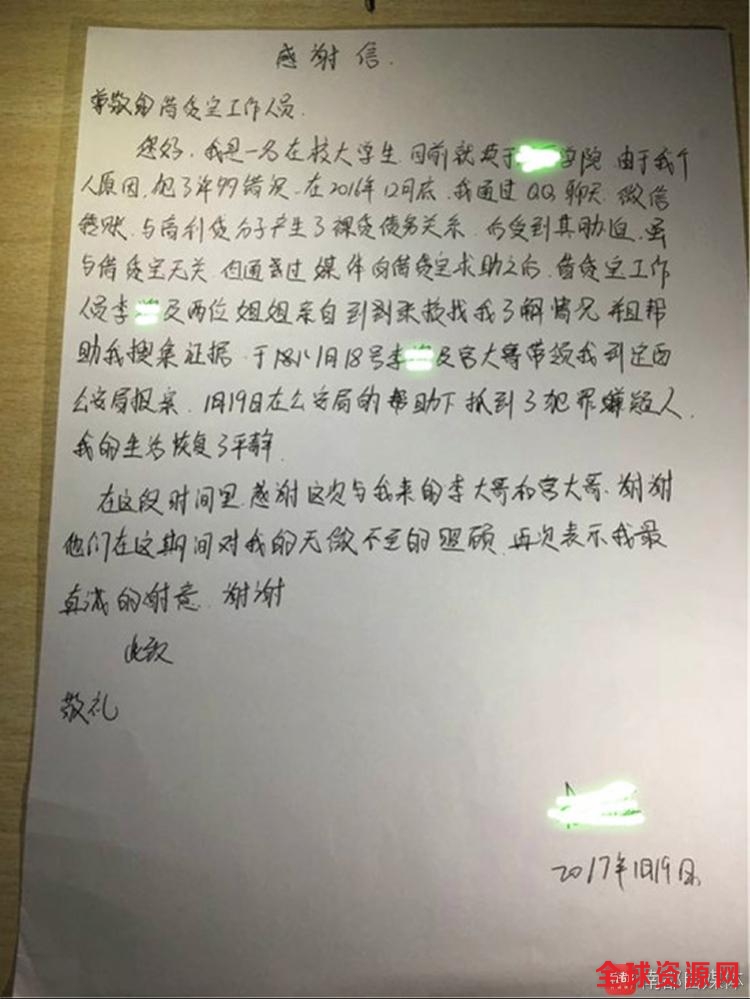 感谢信.
尊敬的借贷宝工作人员.
您好,我是一名在校大学生,目前就读于学院,由于我个
人原因,犯了许多错误.在2016年12月底,我通过QQ聊天,微信
转账,与高利贷分子产生了裸贷债务关系,后受到其胁迫,虽
与借贷宝无关,但通过媒体向借贷宝求助之后,借贷宝工作
人员李及两位姐姐亲自到到来校找我了解情况并且帮
助我搜集证据.于1月18号李及宫大哥带领我到定西
公安局报案,1月19日在公安局的帮助下抓到了犯罪嫌疑人,
我的生活恢复了平静.
在这段时间里,感谢这次与我来的李大哥和宫大哥,谢谢
他们在这期间对我的无微不至的照顾,再次表示我最
真诚的谢意.谢谢
此致
敬礼
2017年1月19日.
全球资源网
南都自媒体